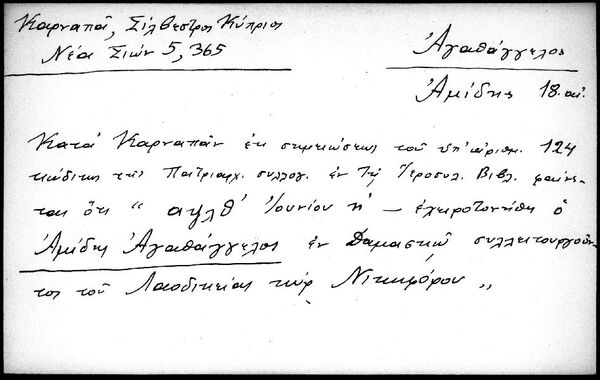 Καρναπᾶ, Σίλβεστρος Κύπριος
Νέα Σιών 5, 365
Ἀγαθάγγελος
Ἀμίδης 18. αἰ.
Κατά Καρναπᾶν ἐκ σημειώσεως τοῦ ὑπ' ἀριθμ. 124
κώδικος τῆς Πατριαρχ. συλλογ. ἐν τῇ Ἱεροσολ. Βιβλ. φαίνε-
ται ὅτι " αψλθ' Ἰουνίου η' — ἐχειροτονήθη ὁ
Ἀμίδης Ἀγαθάγγελος ἐν Δαμασκῷ συλλειτουργοῦν-
τος τοῦ Λαοδικείας κύρ Νικηφόρου "